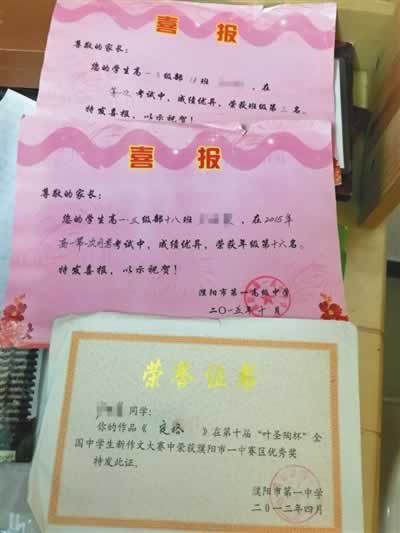 喜报
尊敬的家长：
您的学生高一 级部 班 ，在
第一次考试中，成绩优异，荣获班级第三名。
特发喜报，以示祝贺！
喜报
尊敬的家长：
您的学生高一三级部十八班 ，在2015年
高一第一次月考考试中，成绩优异，荣获年级第十六名。
特发喜报，以示祝贺！
濮阳市第一高级中学
二〇一五年十月
荣誉证书
同学：
你的作品《 》在第十届“叶圣陶杯”全
国中学生新作文大赛中荣获濮阳市一中赛区优秀奖
特发此证。
濮阳市第一中学
二〇一二年四月